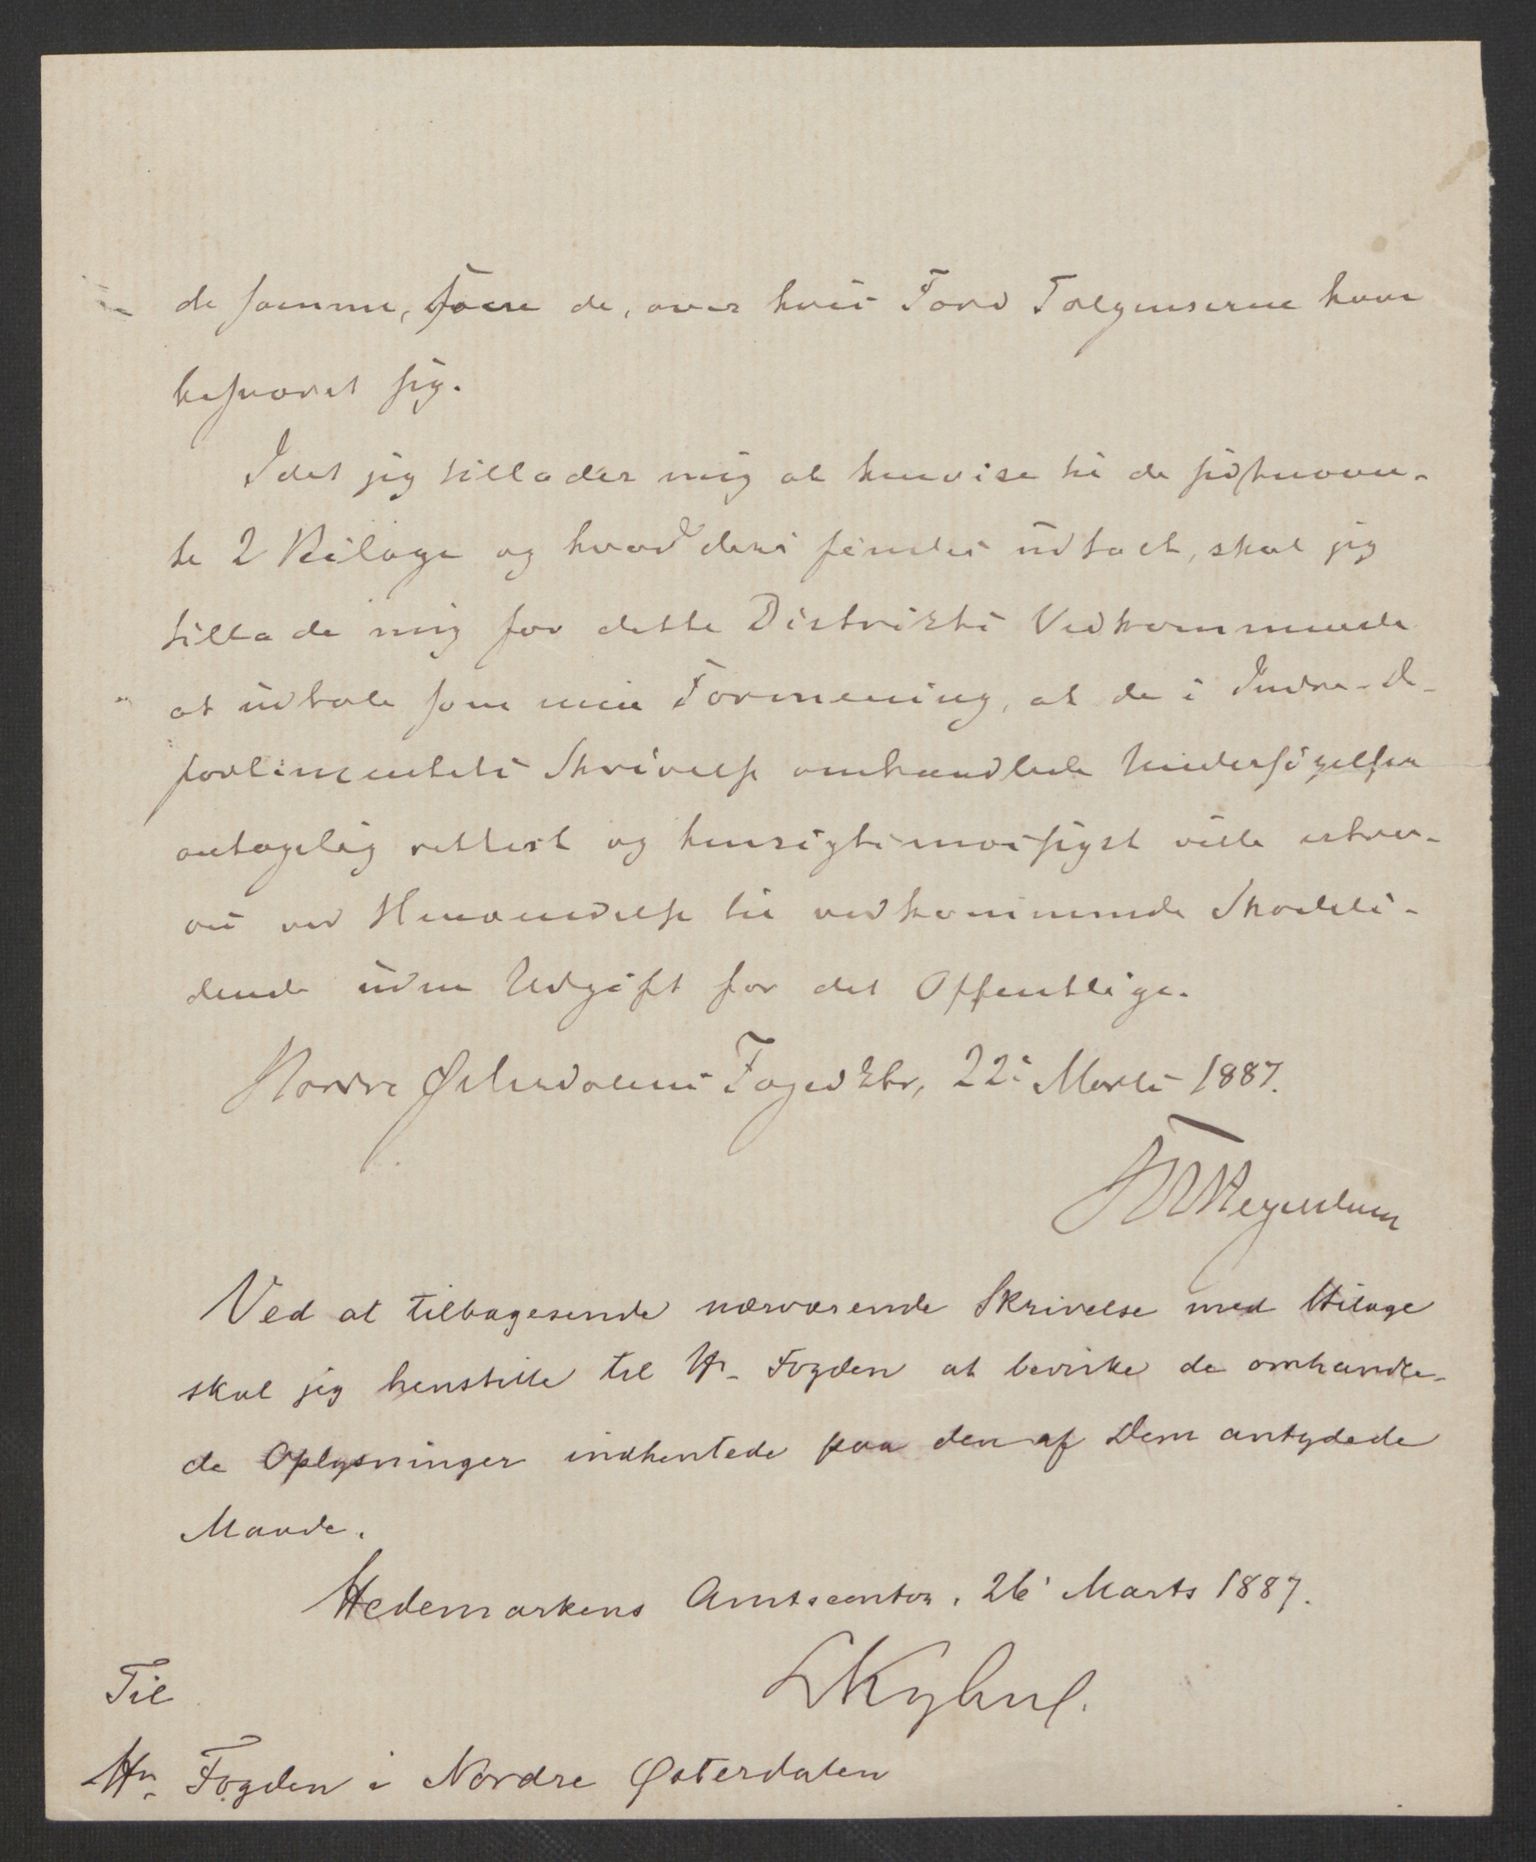 de samme, som de, over hvis Færd Tolgenserne have
besværet sig.
Idet jeg tillader mig at henvise til de sidstnævn-
te 2 Bilage og hvad deri findes udtalt, skal jeg
tillade mig for dette Distrikts Vedkommende
at udtale som min Formening, at de i Indre-De-
partimentets Skrivelse omhandlede Undersøgelser
antagelig rettest og hensigtsmæssigst ville iværk-
ved Henvendelse til vedkommende Skadeli-
dende uden Udgift for det Offentlige.
Nordre Østerdalens Fogedkbr, 22 Marts 1887.
Ved at tilbagesende nærværende Skrivelse med Bilage
skal jeg henstille til Hr. Fogden at bevirke de omhandle-
de Oplysninger indhentede paa den af Dem antydede
Maade.
Hedemarkens Amtscontor, 26 Marts 1887.
Til
Hr. Fogden i Nordre Østerdalen